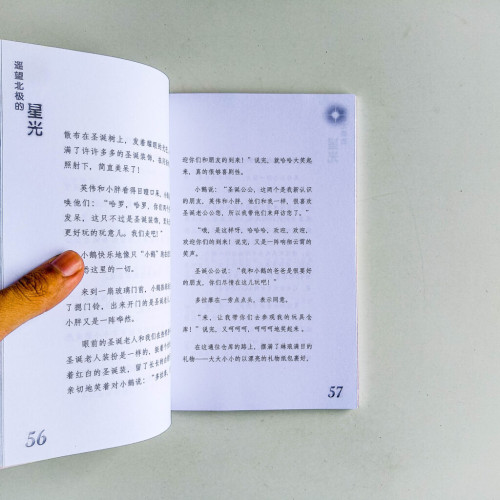 遥望北极的
星光
散布在圣诞树上,发着耀眼的
满了许许多多的圣诞装饰,在
照射下,简直美呆了!
英伟和小胖看得目瞪口呆,小
唤他们:“哈罗,哈罗,你们
发呆,这只不过是圣诞装饰,
更好玩的玩意儿。我们走吧!”
小鹅快乐地像只“小鹅”
悉这里的一切。
来到一扇玻璃门前,小鹅
了摁门铃。出来开门的是圣诞
小胖又是一阵哗然。
眼前的圣诞老人和我们
圣诞老人装扮是一样的,
着红白的圣诞装,留了长长
来切地笑着对小鹅说:“
56
迎你们和朋友的到来!”说完,就哈哈大笑起
来,真的很够喜剧性。
小鹅说:“圣诞公公,这两个是我新认识
的朋友,英伟和小胖。他们和我一样,很喜欢
圣诞老公公您,所以我带他们来拜访您了。”
“哦,是这样呀,哈哈哈,欢迎,欢迎,
欢迎你们的到来!说完,又是一阵响彻云霄的
笑声。
圣诞公公说:“我和小鹅的爸爸是很要好
的朋友,你们尽情在这儿玩吧!”
多纺藤在一旁点点头,表示同意。
“来,让我带你们去参观我的玩具仓
库!”说完,又呵呵呵,呵呵呵地笑起来。
在这通往仓库的路上,摆满了琳琅满目的
礼物——大大小小的以漂亮的礼物纸包裹好。
57